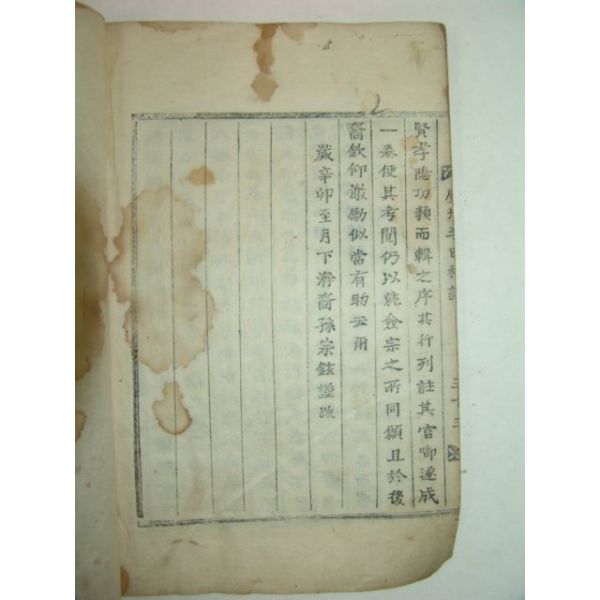 賢孝隐功類而輯之序其行列註其官啣遂成
一奏便其考閱仍以乾僉宗之所同願且於後
裔欽仰激勵似當有助云爾
歲辛卯至月下澣裔孫宗鉉謹跋
三十三